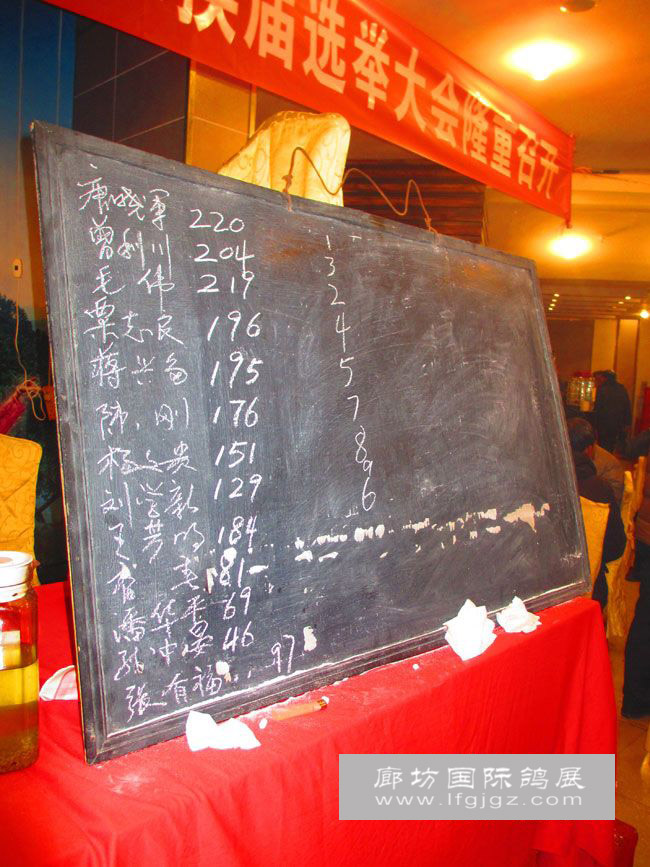 换届选举大会隆重召开
唐晓军 220
曾利川 204
毛伟 219
粟志良 196
蒋兴 195
陈刚 176
杨文贵 151
刘学新 129
王芳明 184
81
潘华平 69
张冲 46
張有福 97
1
3
2
4
5
7
8
9
6
廊坊国际鸽展
www.lfgjgz.com